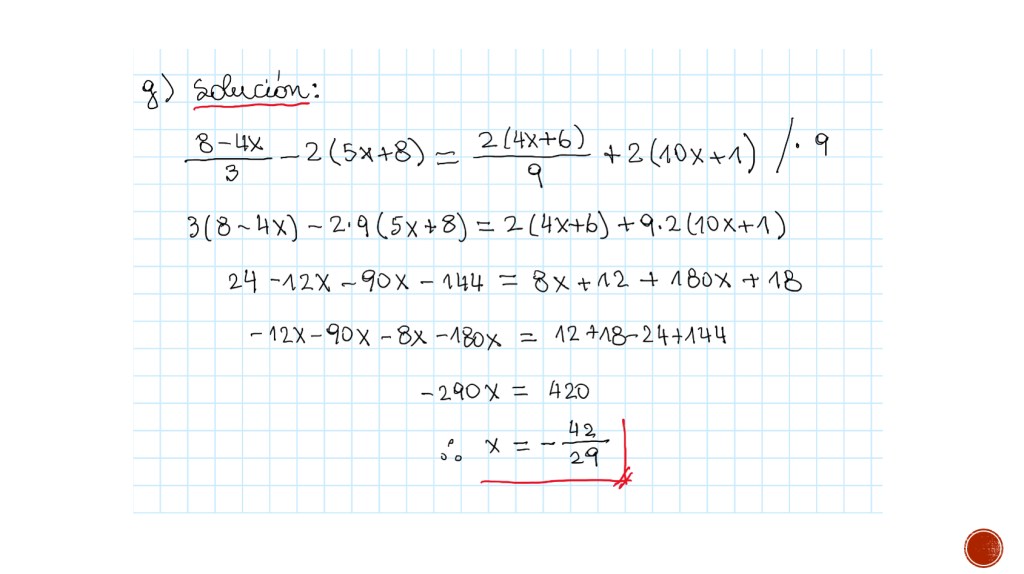 g) Solución:
(8-4x)/3 - 2(5x+8) = 2(4x+6)/9 + 2(10x+1) /· 9
3(8-4x) - 2·9(5x+8) = 2(4x+6) + 9·2(10x+1)
24 -12x - 90x - 144 = 8x + 12 + 180x + 18
-12x - 90x - 8x - 180x = 12 + 18 - 24 + 144
-290x = 420
∴ x = - 42/29